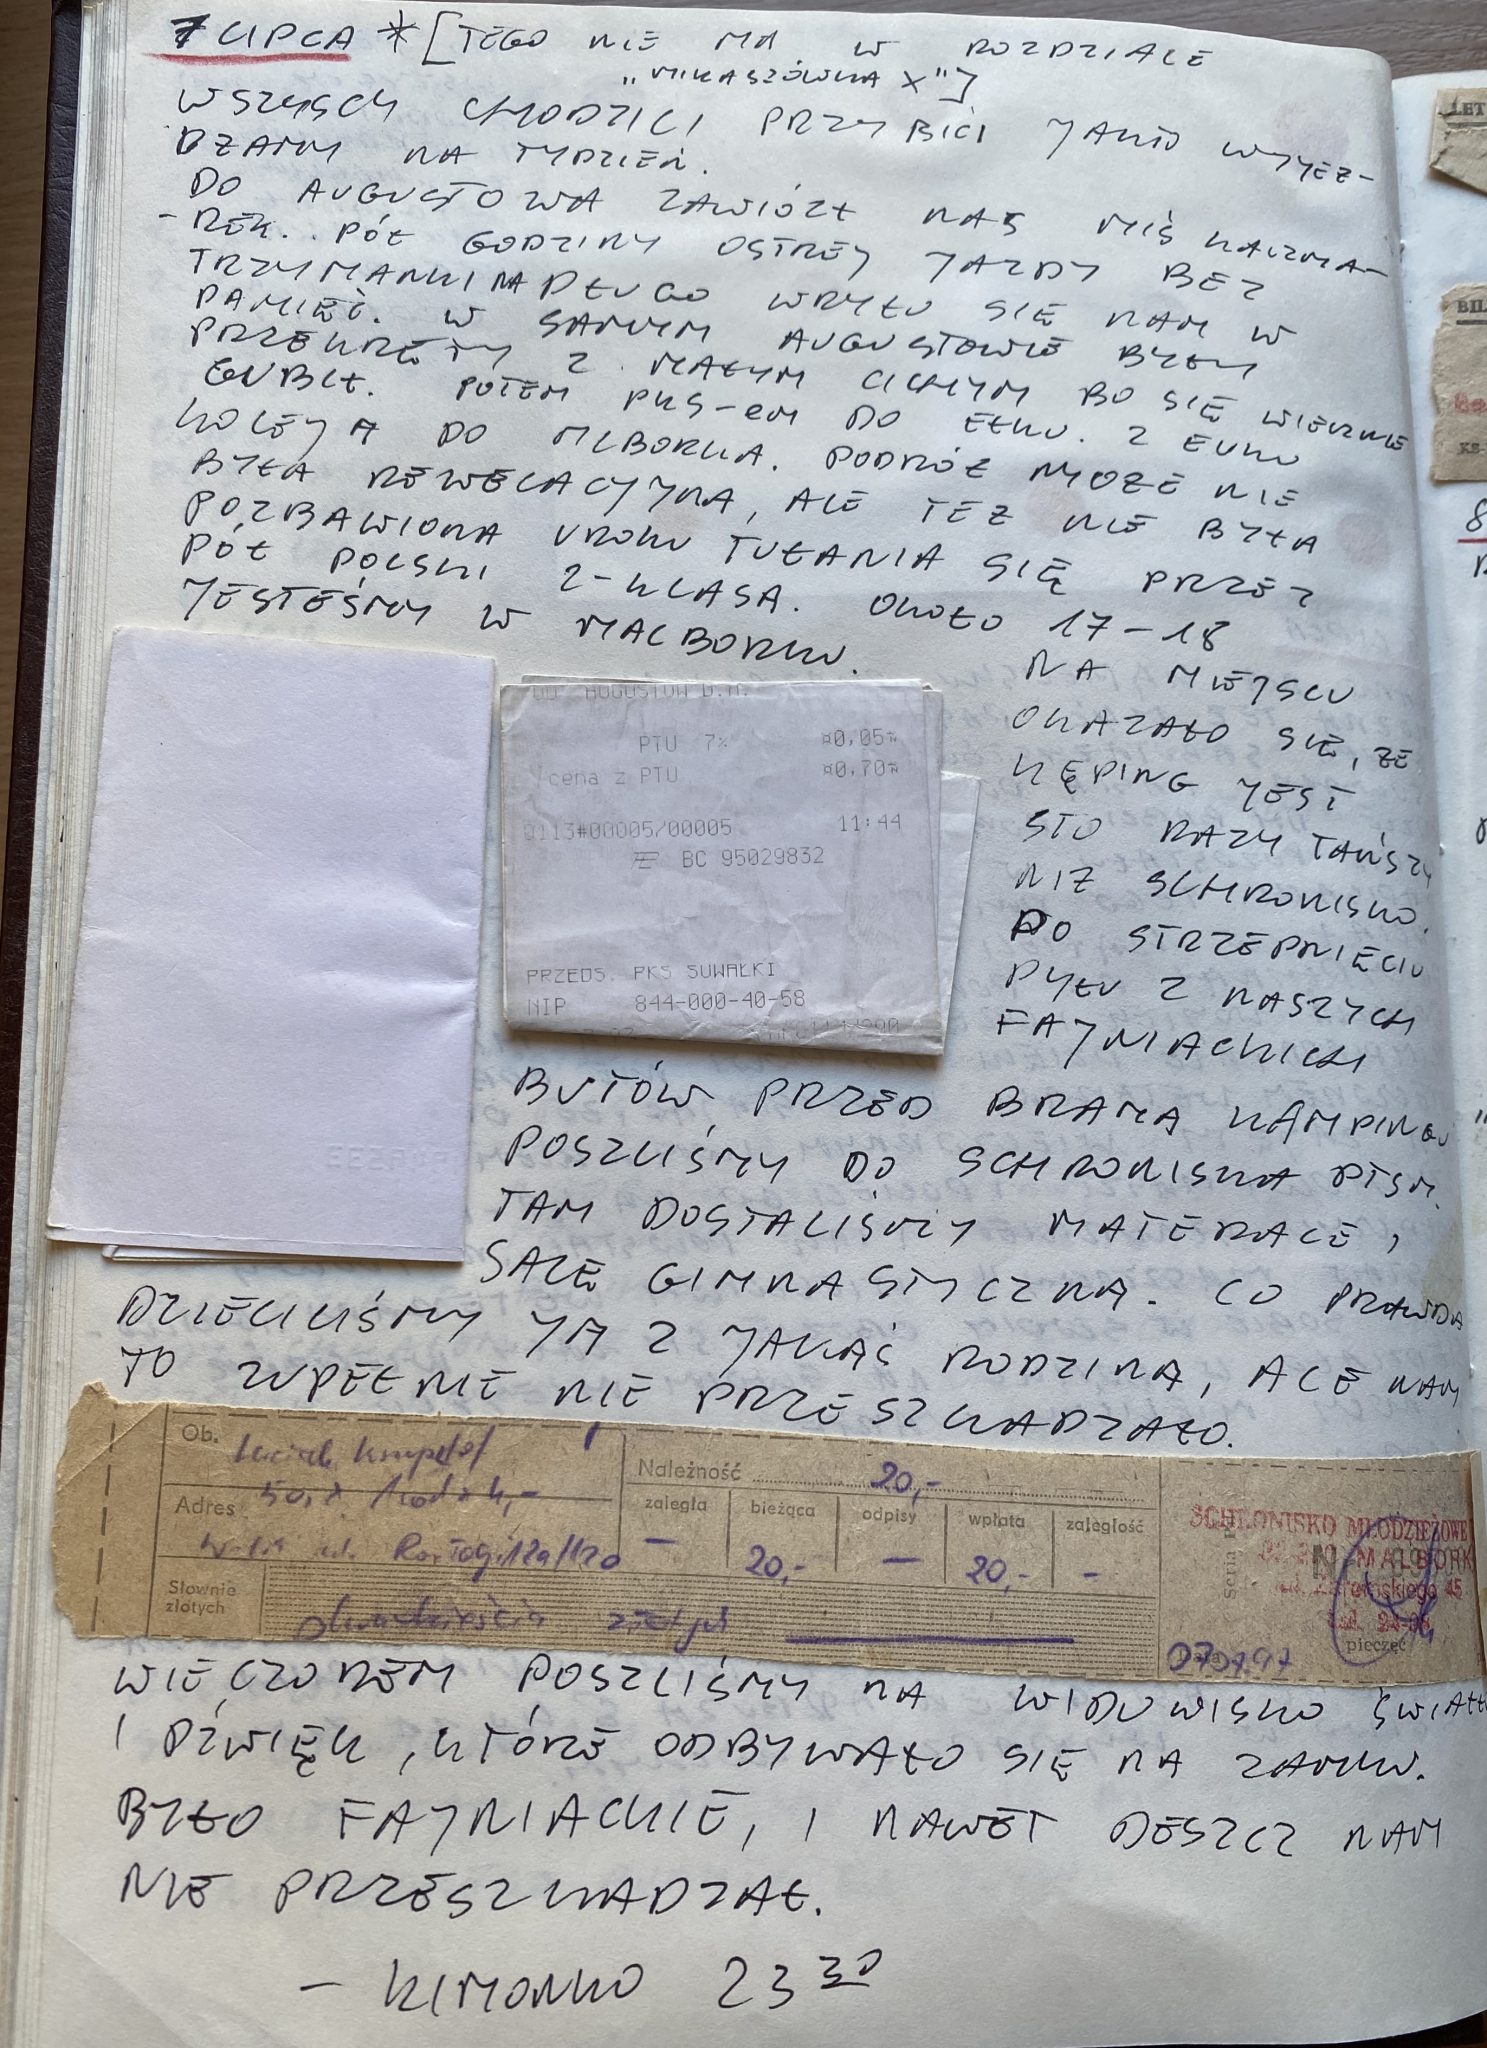 7 LIPCA * [TEGO NIE MA W ROZDZIALE
"MIKASZÓWKA X"]
WSZYSCY CHODZILI PRZYBICI JAKO WYJEŻ-
DŻAMY NA TYDZIEŃ.
DO AUGUSTOWA ZAWIÓZŁ NAS MIŚ KACZMA-
-REK. PÓŁ GODZINY OSTREJ JAZDY BEZ
TRZYMANKI NA DŁUGO WRYŁO SIĘ NAM W
PAMIĘĆ. W SAMYM AUGUSTOWIE BYŁY
PRZEKRĘTY Z MAŁYM CICHYM BO SIĘ WIECZNIE
GUBIŁ. POTEM PKS-EM DO EŁKU. Z EŁKU
KOLEJĄ DO MLBORKA. PODRÓŻ MOŻE NIE
BYŁA REWELACYJNA, ALE TEŻ NIE BYŁA
POZBAWIONA UROKU TUŁANIA SIĘ PRZEZ
PÓŁ POLSKI 2-KLASĄ. OKOŁO 17-18
JESTEŚMY W MALBORKU.
NA MIEJSCU
OKAZAŁO SIĘ, ŻE
KĘPING JEST
STO RAZY TAŃSZY
NIŻ SCHRONISKO.
PO STRZEPNIĘCIU
PYŁU Z NASZYCH
FAJNIACKICH
BUTÓW PRZED BRAMĄ KĄMPINGU
POSZLIŚMY DO SCHRONISKA PTSM.
TAM DOSTALIŚMY MATERACE,
SALĘ GIMNASTYCZNĄ. CO PRAWDA
DZIELILIŚMY JĄ Z JAKĄŚ RODZINĄ, ALE NAM
TO ZUPEŁNIE NIE PRZESZKADZAŁO.
DO AUGUSTÓW D.A.
PTU 7% ¤0,05
cena z PTU ¤0,70
0113#00005/00005 11:44
BC 95029832
PRZEDS. PKS SUWAŁKI
NIP 844-000-40-58
Ob.
Adres
Słownie złotych
dwadzieścia złotych
Należność 20,-
zaległa bieżąca odpisy wpłata zaległość
— 20,- — 20,- -
SCHRONISKO MŁODZIEŻOWE
MALBORK
ul. Żeromskiego 45
pieczęć
07.07.97
WIECZOREM POSZLIŚMY NA WIDOWISKO ŚWIATŁO
I DŹWIĘK, KTÓRE ODBYWAŁO SIĘ NA ZAMKU.
BYŁO FAJNIACKIE, I NAWET DESZCZ NAM
NIE PRZESZKADZAŁ.
- KIMONKO 23 30